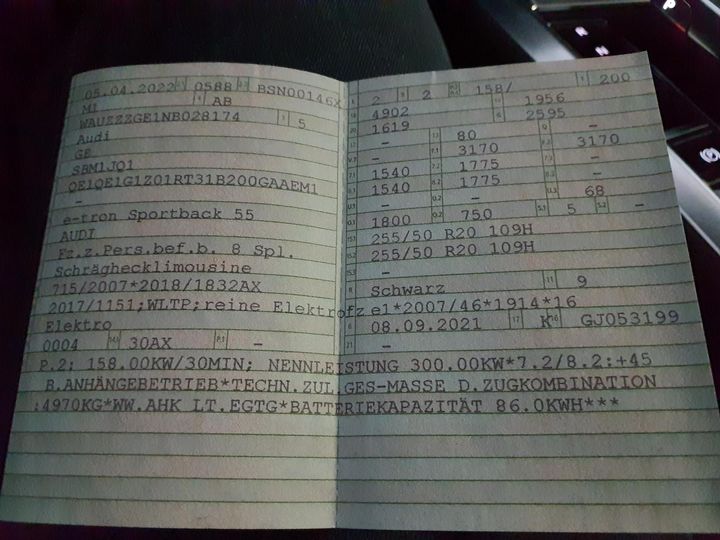 05.04.2022 0588 BSN00146X
M1 AB
WAUZZZGE1NB028174 5
Audi
GE
SBM1JQ1
QE1QE1G1Z01RT31B200GAAEM1
-
e-tron Sportback 55
AUDI
Fz.z.Pers.bef.b. 8 Spl.
Schräghecklimousine
715/2007*2018/1832AX
2017/1151;WLTP;reine Elektrofz
Elektro
0004 30AX -
2 2 158/ 200
4902 1956
1619 2595
- 80 -
- 3170 3170
1540 1775 -
1540 1775 -
- - 68
1800 750 5 -
255/50 R20 109H
255/50 R20 109H
-
Schwarz 9
e1*2007/46*1914*16
08.09.2021 K GJ053199
-
P.2: 158.00KW/30MIN; NENNLEISTUNG 300.00KW*7.2/8.2:+45
B.ANHÄNGEBETRIEB*TECHN.ZUL.GES-MASSE D.ZUGKOMBINATION
:4970KG*WW.AHK LT.EGTG*BATTERIEKAPAZITÄT 86.0KWH***